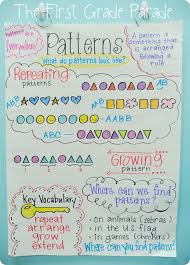 The First Grade Parade
Patterns are everywhere!
Patterns
A pattern is something that is arranged following a rule
What do patterns look like?
Repeating patterns
AB
ABB
AABB
ABC
Growing pattern
Key Vocabulary
repeat
arrange
grow
extend
Where can we find patterns?
- on animals (zebras)
- in the U.S. flag
- in games (checkers)
Where can you find patterns?